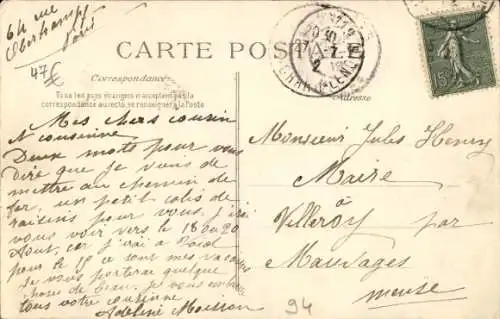 64 rue
Oberkampf
Paris
47 F
CARTE POSTALE
Correspondance
Tous les pays étrangers n'acceptent pas la
correspondance au recto, se renseigner à la Poste
Adresse
15
Mes chers cousin
et cousinne
Deux mots pour vous
dire que je viens de
mettre au chemin de
fer, un petit colis de
raisins pour vous, j'irai
vous voir vers le 18 ou 20
Aout, car j'irai à
pour le 19 ce sont mes vacances
Je vous porterai quelque
chose de beau, je vous embrasse
tous votre cousinne
Adeline Moisson
Monsieur Jules Henry
Maire
à
Villeroy par
Mauvages
meuse
94